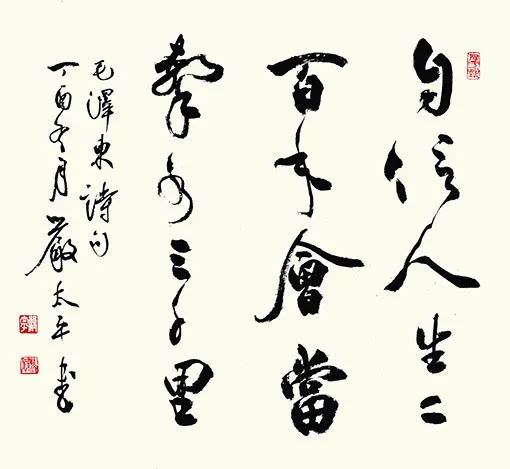 自信人生二
百年會當
擊水三千里
毛澤東詩句
丁酉冬月嚴太平書